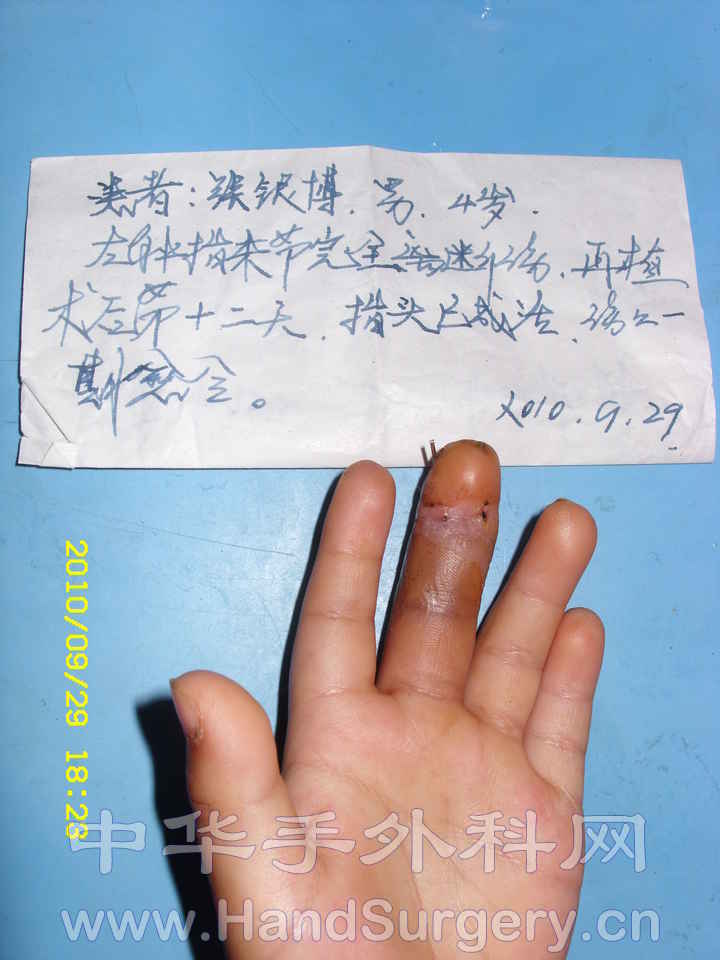 患者：张银博，男，4岁.
左中指末节完全离断伤，再植
术后第十二天，指头已成活，伤口一
期愈合。
2010.9.29
2010/09/29 18:28
中华手外科网
www.HandSurgery.cn